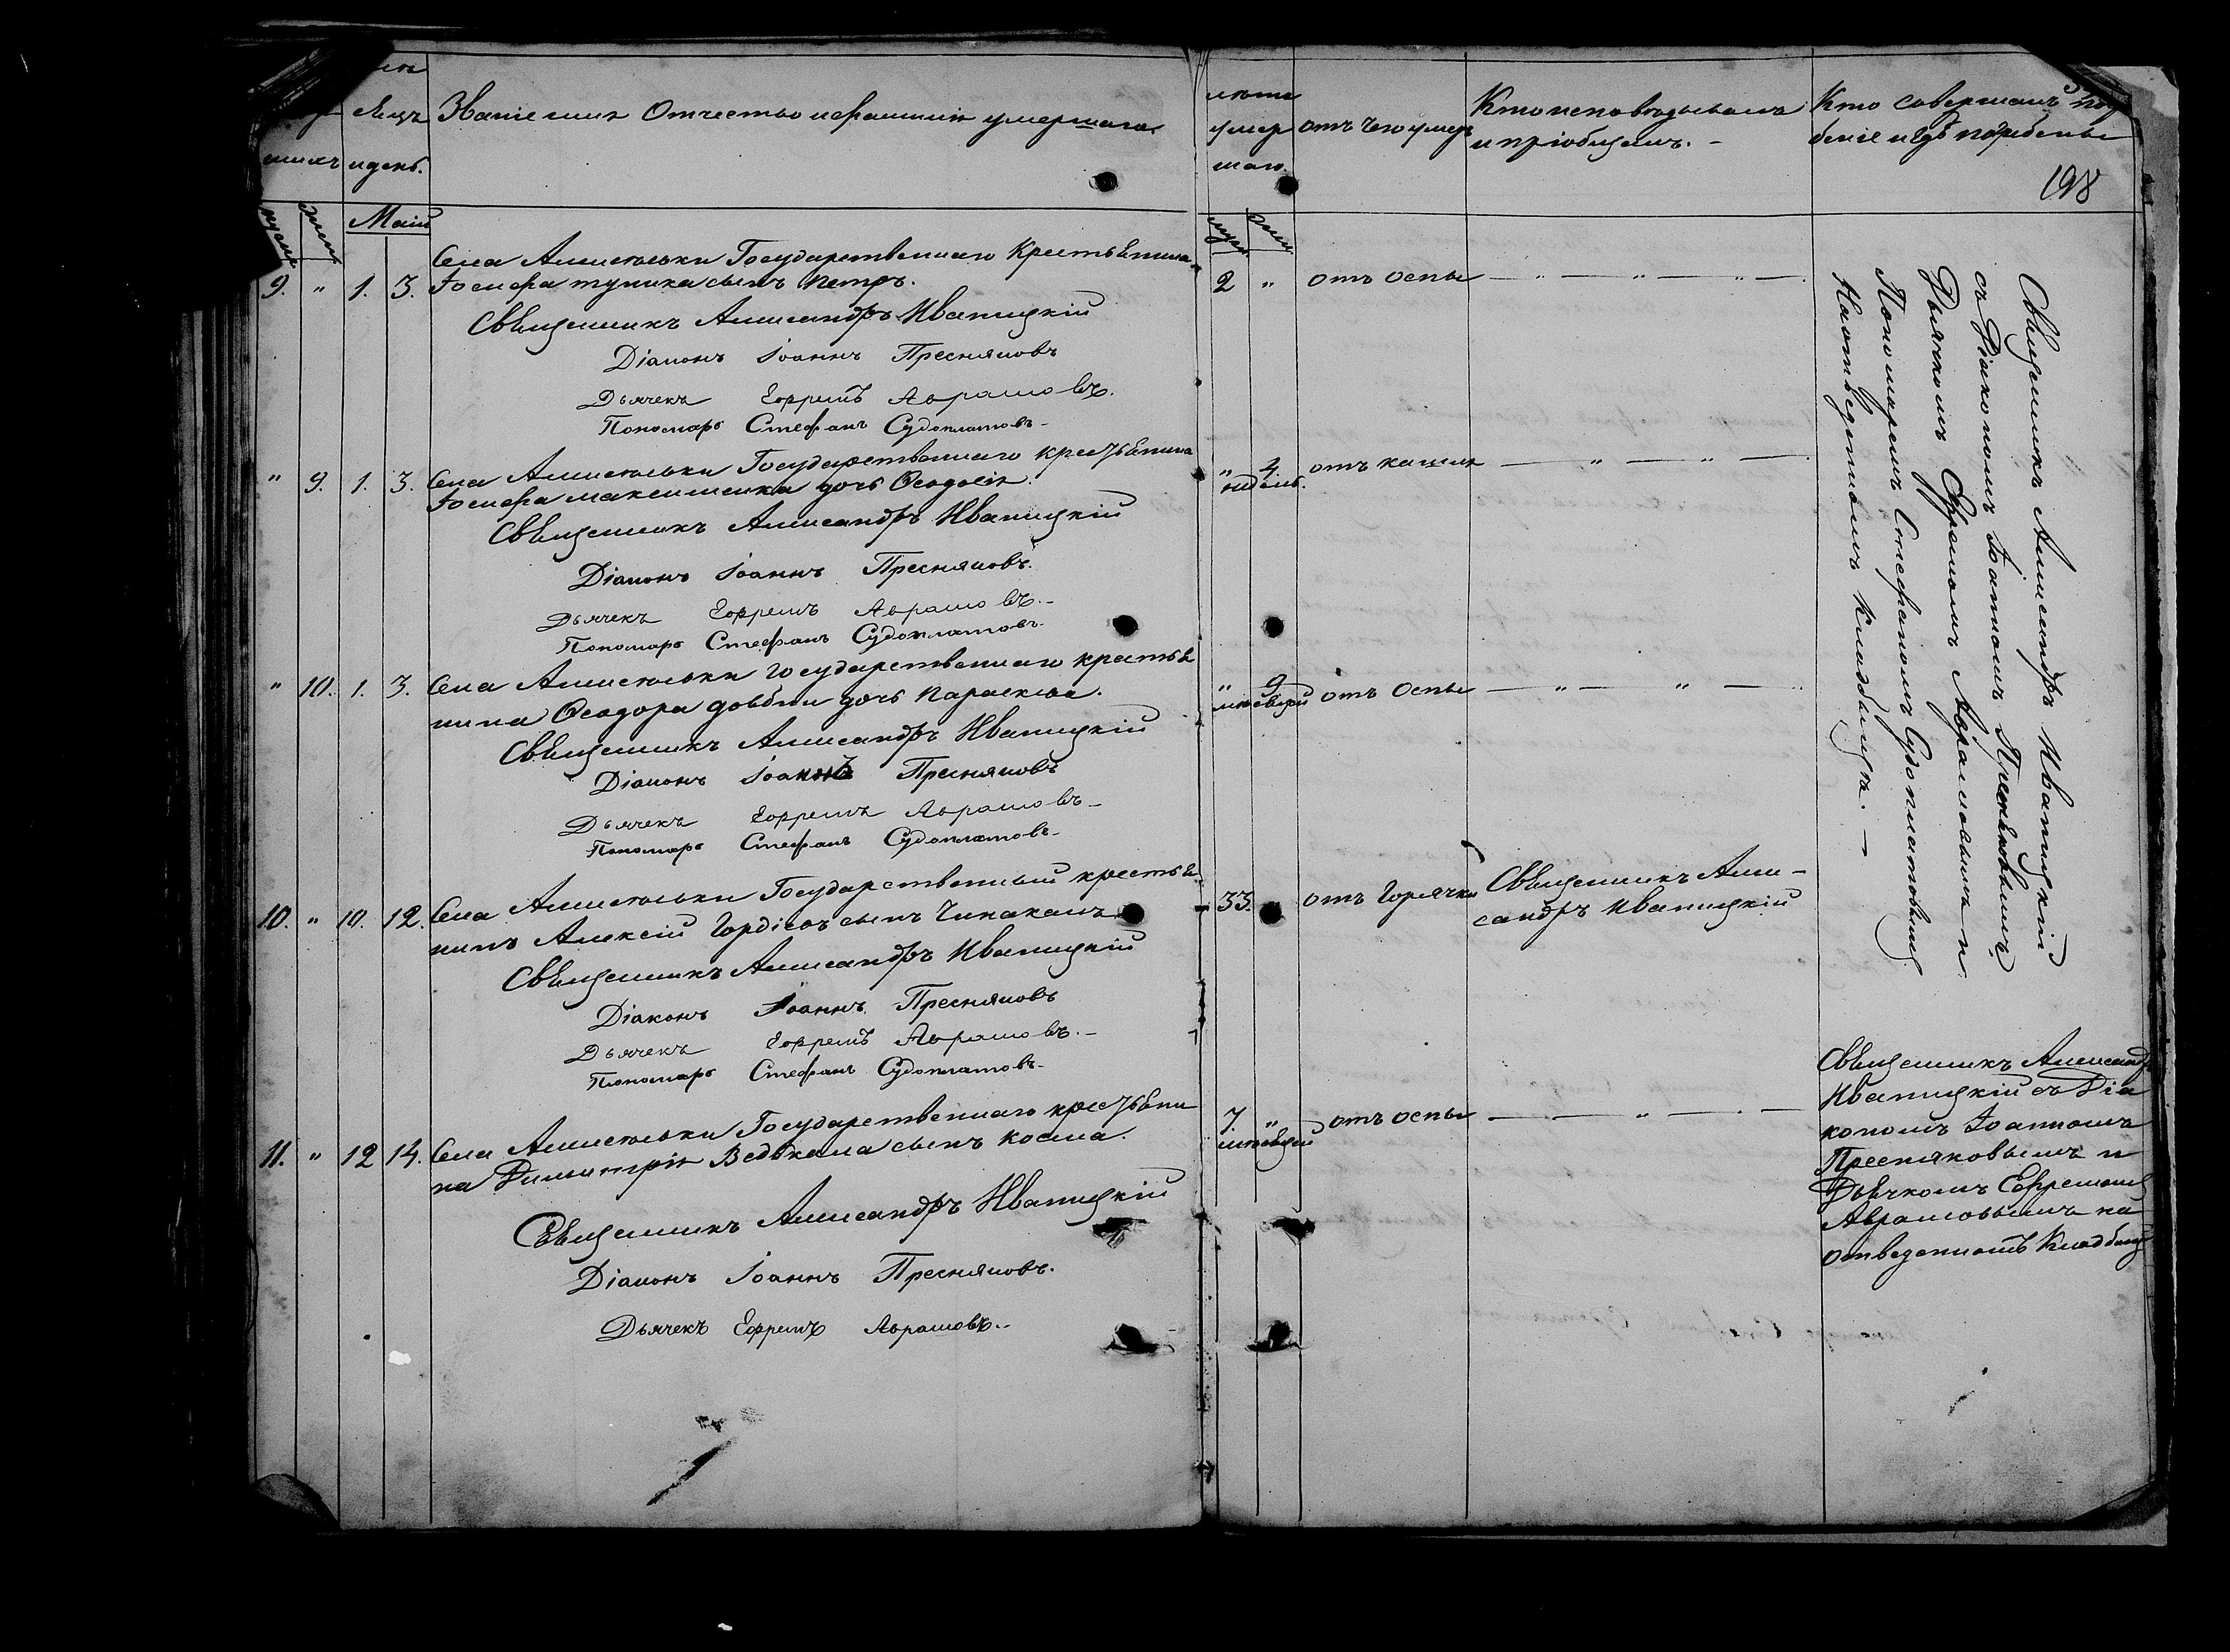 Мѣсяцъ
и день.
Званіе имя Отчество и фамилія умершаго.
Май
9. " 1. 3.
Села Алисовки Государственнаго Крестьянина
Іосифа тупика сынъ Петръ.
Священникъ Александръ Иваницкій
Діаконъ Іоаннъ Пресняковъ
Дьячекъ Ефремъ Аврамовъ.
Пономарь Стефанъ Судоплатовъ
" 9. 1. 3.
Села Государственнаго крестьянина
Іосифа максименка дочь Ѳеодосія.
Священникъ Александръ Иваницкій
Діаконъ Іоаннъ Пресняковъ.
Дьячекъ Ефремъ Аврамовъ.
Пономарь Стефанъ Судоплатовъ
" 10. 1. 3.
Села государственнаго крестья
нина Ѳеодора довбни дочь Параскева.
Священникъ Александръ Иваницкій
Діаконъ Іоаннъ Пресняковъ
Дьячекъ Ефремъ Аврамовъ
Пономарь Стефанъ Судоплатовъ
10. " 10. 12.
Села Государственный крестья
нинъ Алексій Гордіевъ сынъ
Священникъ Александръ Иваницкій
Діаконъ Іоаннъ Пресняковъ
Дьячекъ Ефремъ Аврамовъ.
Пономарь Стефанъ Судоплатовъ
11. " 12 14.
Села Государственнаго крестьяни
на Димитрія сынъ косма.
Священникъ Александръ Иваницкій
Діаконъ Іоаннъ Пресняковъ.
Дьячекъ Ефремъ Аврамовъ.
лѣта
умер
шаго.
отъ чего умеръ
Кто исповѣдывалъ
и пріобщалъ.
Кто совершалъ погре
беніе и гдѣ погребены
198
2 " отъ оспы
" 4. отъ кашля
недель.
" 9 отъ оспы
мѣсяцей
33. отъ горячки
Священникъ Алек-
сандръ Иваницкій
7. " отъ оспы
мѣсяцей
Священникъ Александръ Иваницкій
съ Діакономъ Іоанномъ Пресняковымъ
Дьячкомъ Ефремомъ Аврамовымъ и
Пономаремъ Стефаномъ Судоплатовымъ
На отведенномъ кладбищѣ.
Священникъ Александръ
Иваницкій съ Діа
кономъ Іоанномъ
Пресняковымъ и
Дьячкомъ Ефремомъ
Аврамовымъ на
отведенномъ кладбищѣ